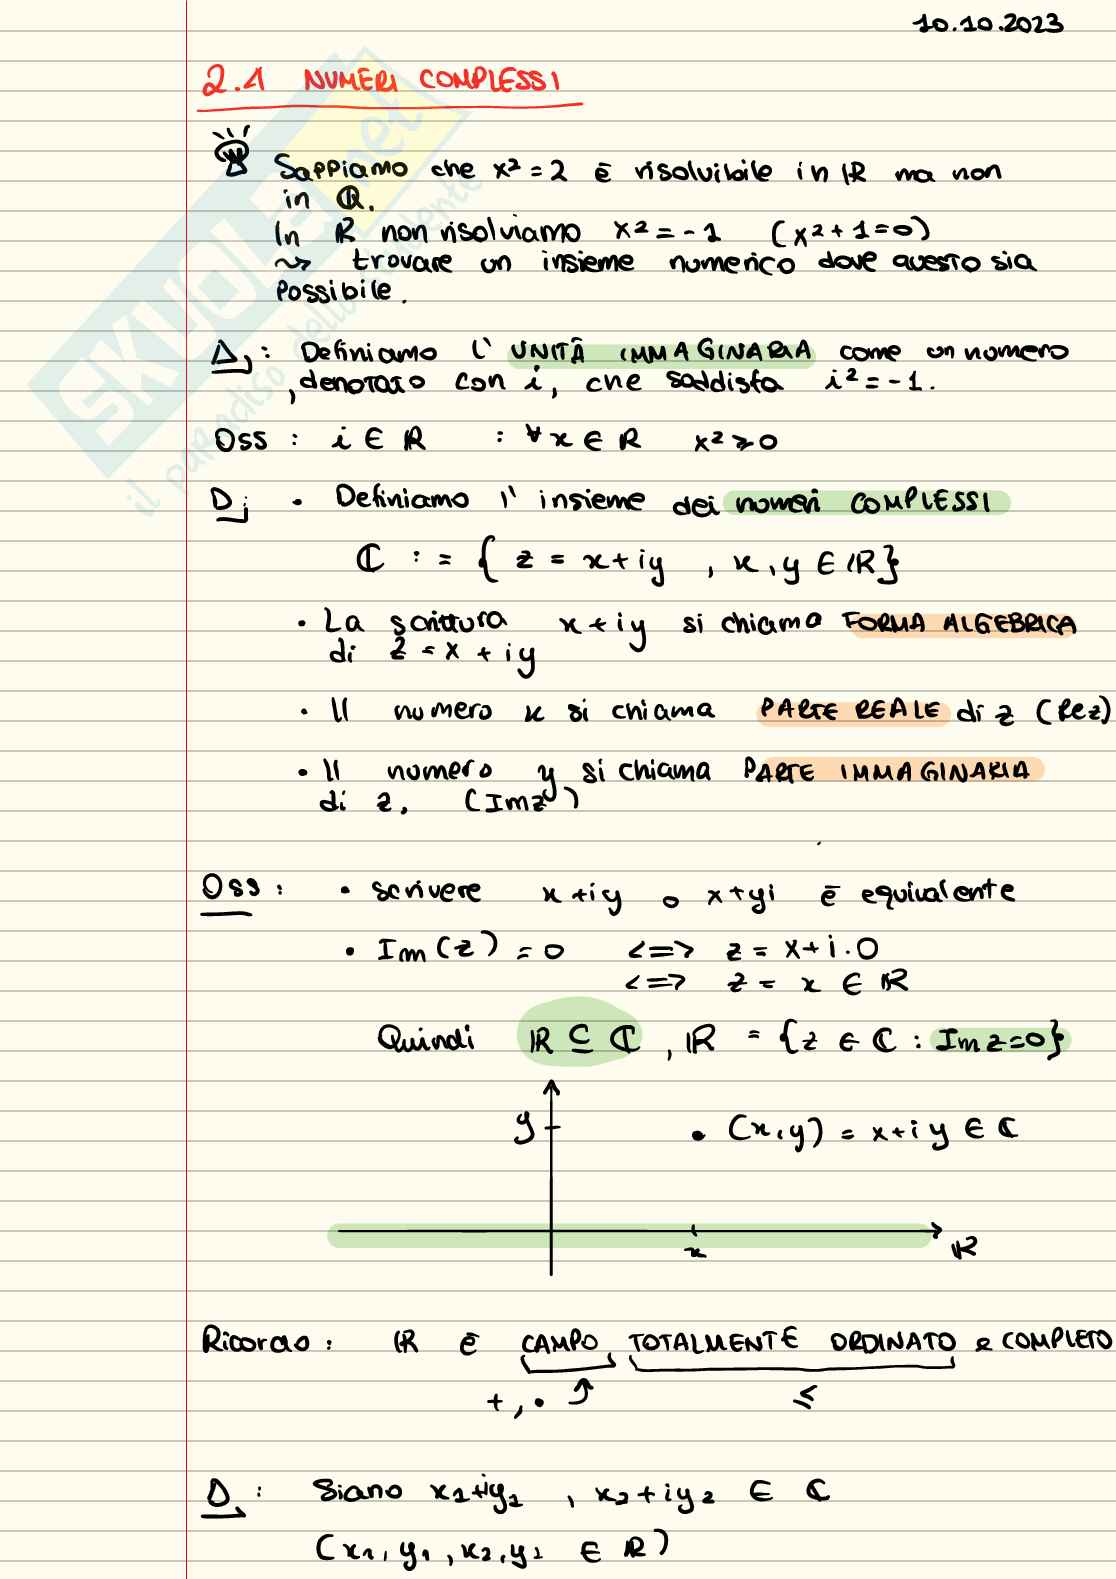 10.10.2023
2.1 NUMERI COMPLESSI
Sappiamo che x² = 2 è risolvibile in ℝ ma non
in ℚ.
In ℝ non risolviamo x² = -1 (x² + 1 = 0)
⇝ trovare un insieme numerico dove questo sia
possibile.
D: Definiamo l' UNITÀ IMMAGINARIA come un numero
, denotato con i, che soddisfa i² = -1.
Oss : i ∈ ℝ : ∀x ∈ ℝ x² ≥ 0
D: • Definiamo l' insieme dei numeri COMPLESSI
ℂ := { z = x+iy , x, y ∈ ℝ}
• La scrittura x+iy si chiama FORMA ALGEBRICA
di z = x + iy
• Il numero x si chiama PARTE REALE di z (Rez)
• Il numero y si chiama PARTE IMMAGINARIA
di z. (Imz)
Oss : • scrivere x+iy o x+yi è equivalente
• Im(z) = 0 <=> z = x+i·0
<=> z = x ∈ ℝ
Quindi ℝ ⊆ ℂ , ℝ = {z ∈ ℂ : Imz=0}
y • (x,y) = x+iy ∈ ℂ
x ℝ
Ricordo : ℝ è CAMPO TOTALMENTE ORDINATO e COMPLETO
+ , • ≤
D : Siano x₁+iy₁ , x₂+iy₂ ∈ ℂ
(x₁, y₁, x₂, y₂ ∈ ℝ)
SKUOLA.net
il paradiso dello studente